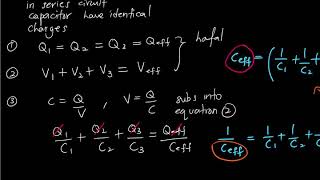 in series circuit
capacitor have identical
charges
① Q₁ = Q₂ = Q₂ = Qeff
hafal
② V₁ + V₂ + V₃ = Veff
③ C = Q/V , V = Q/C subs into
equation ②
Q₁/C₁ + Q₂/C₂ + Q₃/C₃ = Qeff/Ceff
Ceff = (1/C₁ + 1/C₂ +
1/Ceff = 1/C₁ + 1/C₂ +